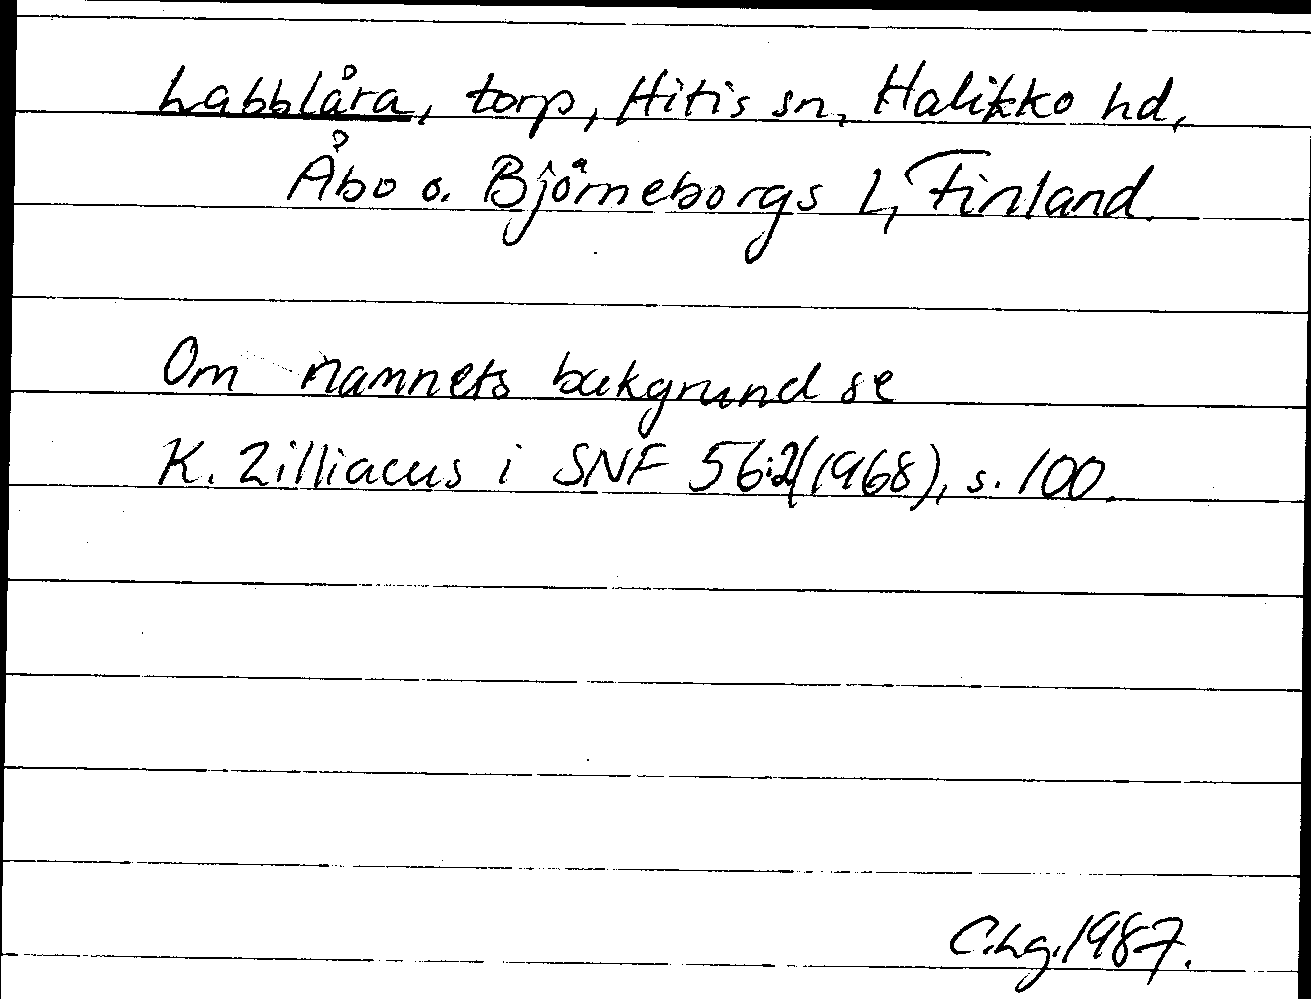 Labblåra, torp, Hitis sn, Halikko hd,
Åbo o. Björneborgs l, Finland.
Om namnets bakgrund se
K. Zilliacus i SNF 56:2(1968), s. 100.
C.Lg.1987.